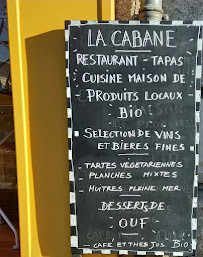 LA CABANE
RESTAURANT - TAPAS
CUISINE MAISON DE
PRODUITS LOCAUX -
BIO
SELECTION DE VINS
ET BIÈRES FINES
TARTES VEGETARIENNES
PLANCHES MIXTES
HUITRES PLEINE MER
DESSERT DE
OUF
CAFÉ ET THÉS JUS BIO